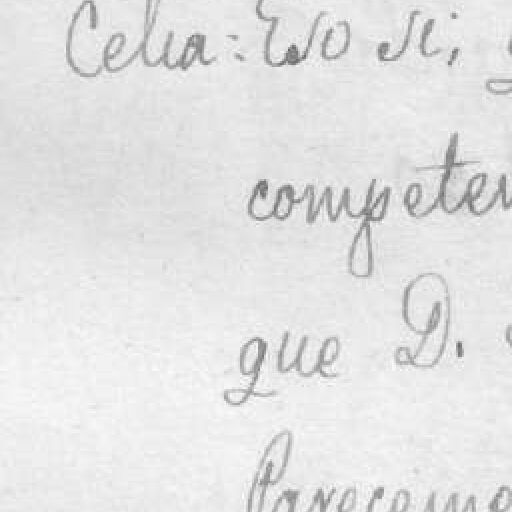 Celia: Eso si;
competen
que D.
Parecemo